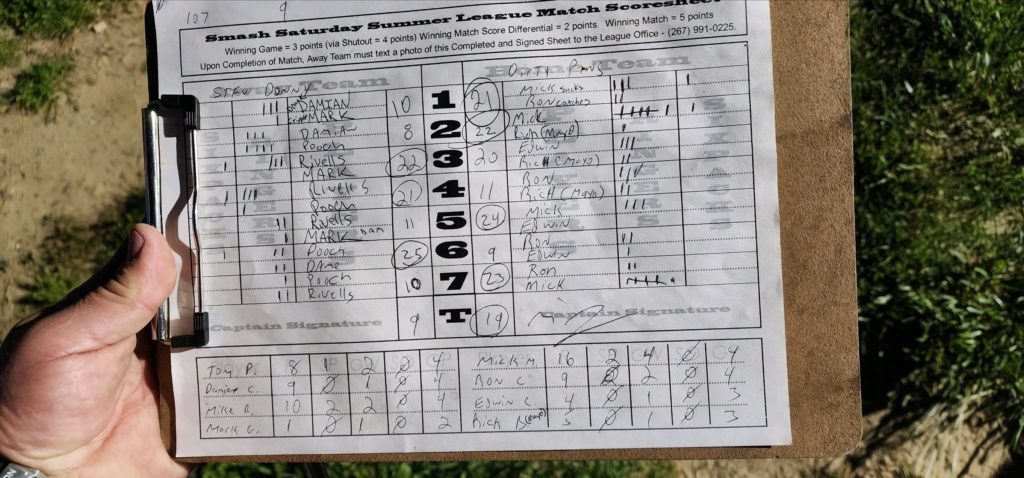 107 9
Smash Saturday Summer League Match Scoresheet
Winning Game = 3 points (via Shutout = 4 points) Winning Match Score Differential = 2 points. Winning Match = 5 points
Upon Completion of Match, Away Team must text a photo of this Completed and Signed Sheet to the League Office - (267) 991-0225.
Away Team Home Team
STEW DONNY
DAMIAN 10 1 21 Mick sinks
MARK Ron catches
DAMIAN 8 2 22 Mick
Pooch Rich (Mayo)
Rivells 22 3 20 EDWIN
MARK Rich (Mayo)
Rivells 21 4 11 RON
Pooch Rich (Mayo)
Rivells 11 5 24 Mick
MARK EDWIN
Pooch 25 6 9 RON
Edwin
Pooch 10 7 23 Ron
Rivells Mick
Captain Signature 9 T 19 Captain Signature
Tom P. 8 2 0 4 Mick M. 16 2 4 0 4
Damian C. 9 0 1 0 4 RON C. 9 0 2 0 4
Mike R. 10 2 2 0 4 EDWIN C. 4 0 1 0 3
Mark G. 1 0 1 0 2 Rich 0 1 0 3